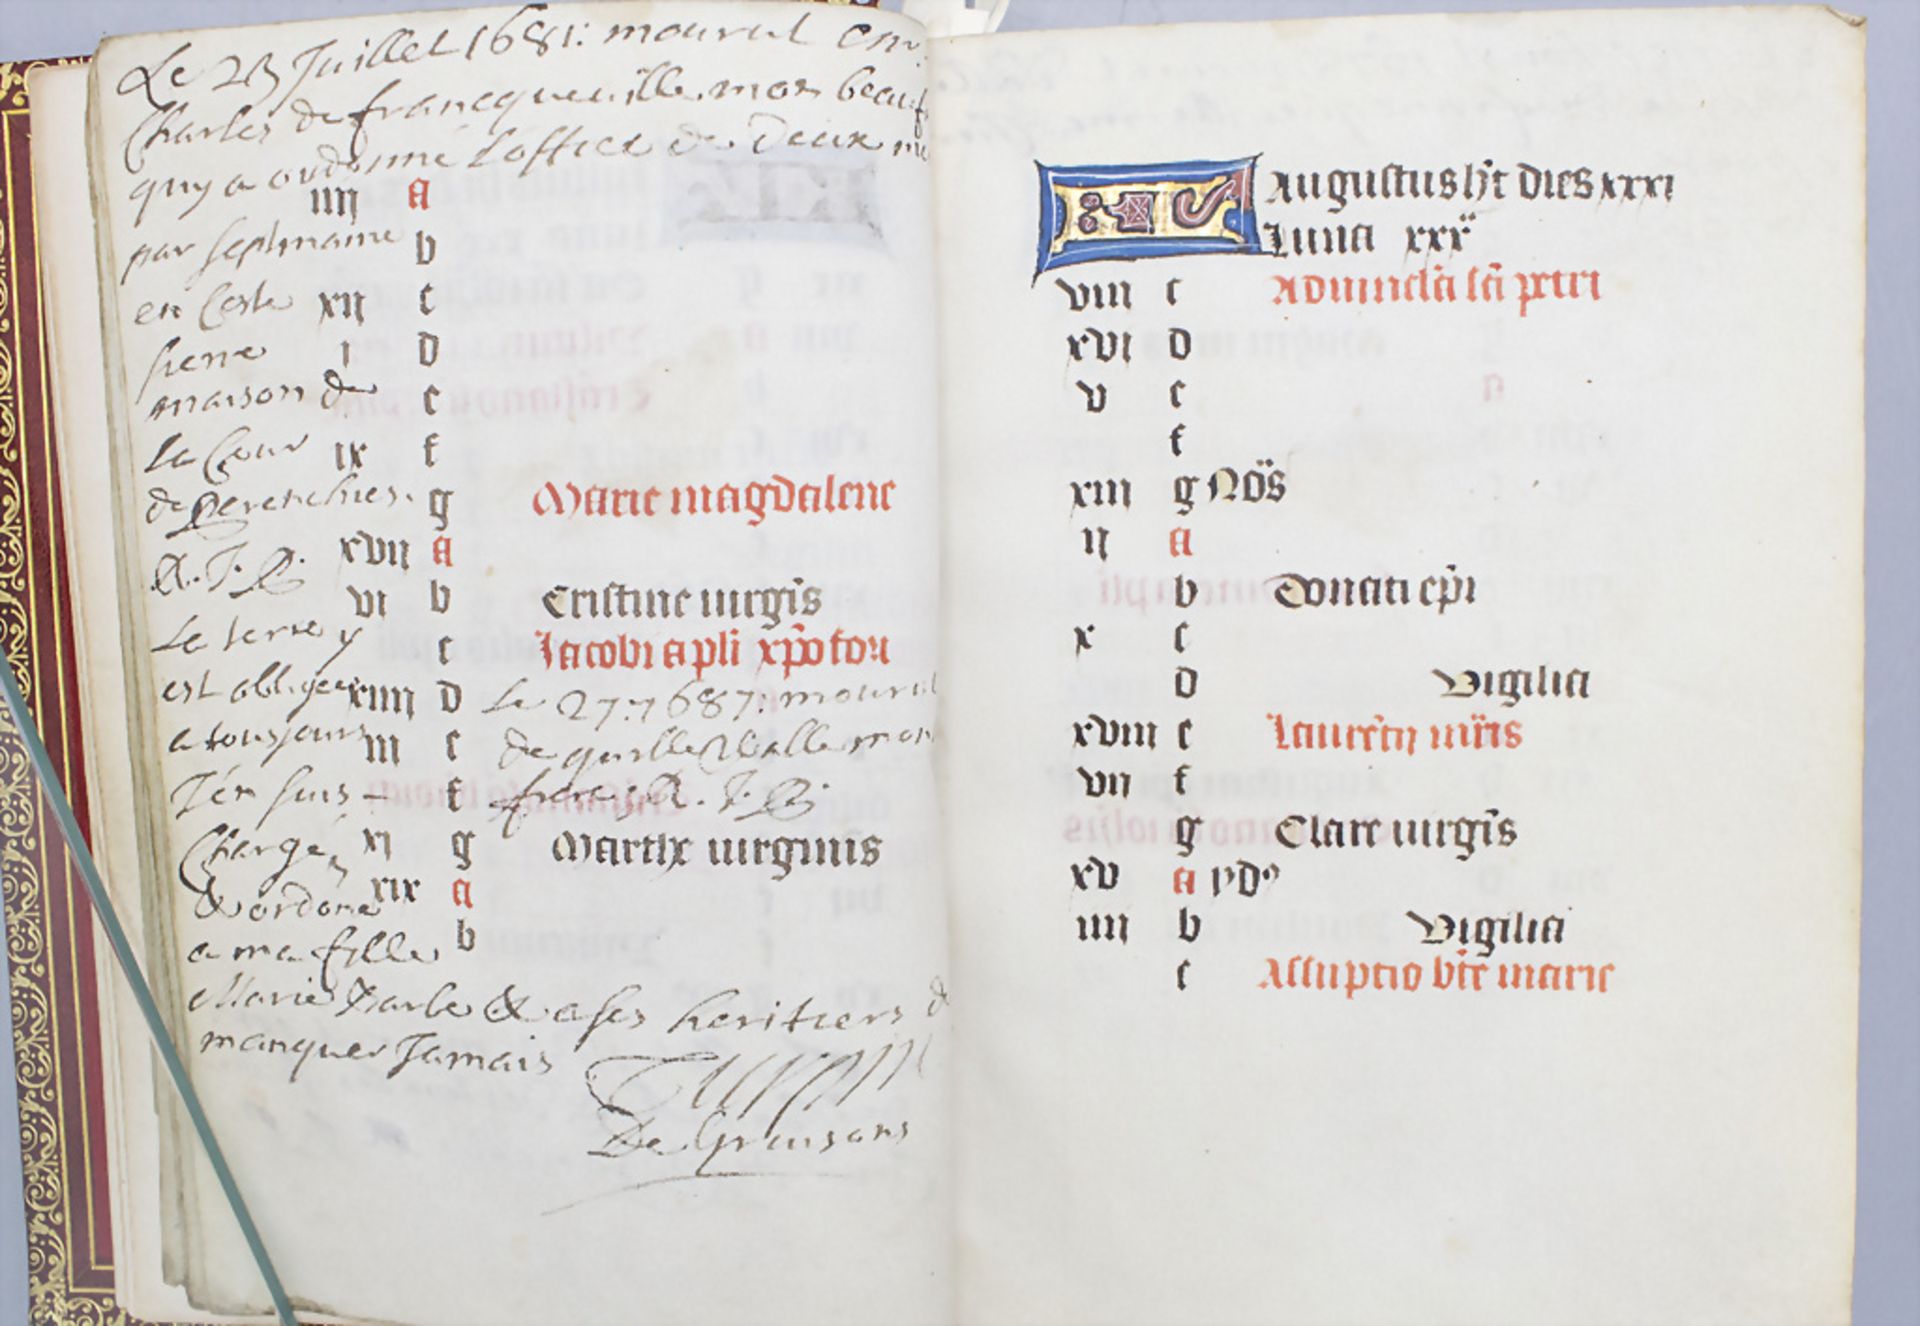 Le 23 Juillet 1681: mourut
Charles de francqueuille mon beauf
quy a ordonné l'office de Deux me
par sepmaine
en Ceste
siene
maison de
la Cour
de Perenchies.
R.J.P.
La terre y
est obligee
a tousjours
J'en suis
Chargé,
& ordone
a ma fille
Marie Barbe & a ses heritiers d
manquer Jamais
De Grusons
iiii a
b
xii c
i d
e
ix f
g Marie magdalene
xvii a
vi b Cristine uirgis
c Jacobi apli xpofori
xiiii d Le 27: 7 1687: mourut
iii e mon
f frere R.J.P.
xi g Marthe uirginis
xix a
b
KL Augustus ht dies xxxi
Luna xxx
viii c Aduincla sci petri
xvi d
v e
f
xiii g Nos
ii a
b Donati epi
x c
d Vigilia
xviii e Laurentii mris
vii f
g Clare uirgis
xv a ydo
iiii b Vigilia
c Assuptio bte marie